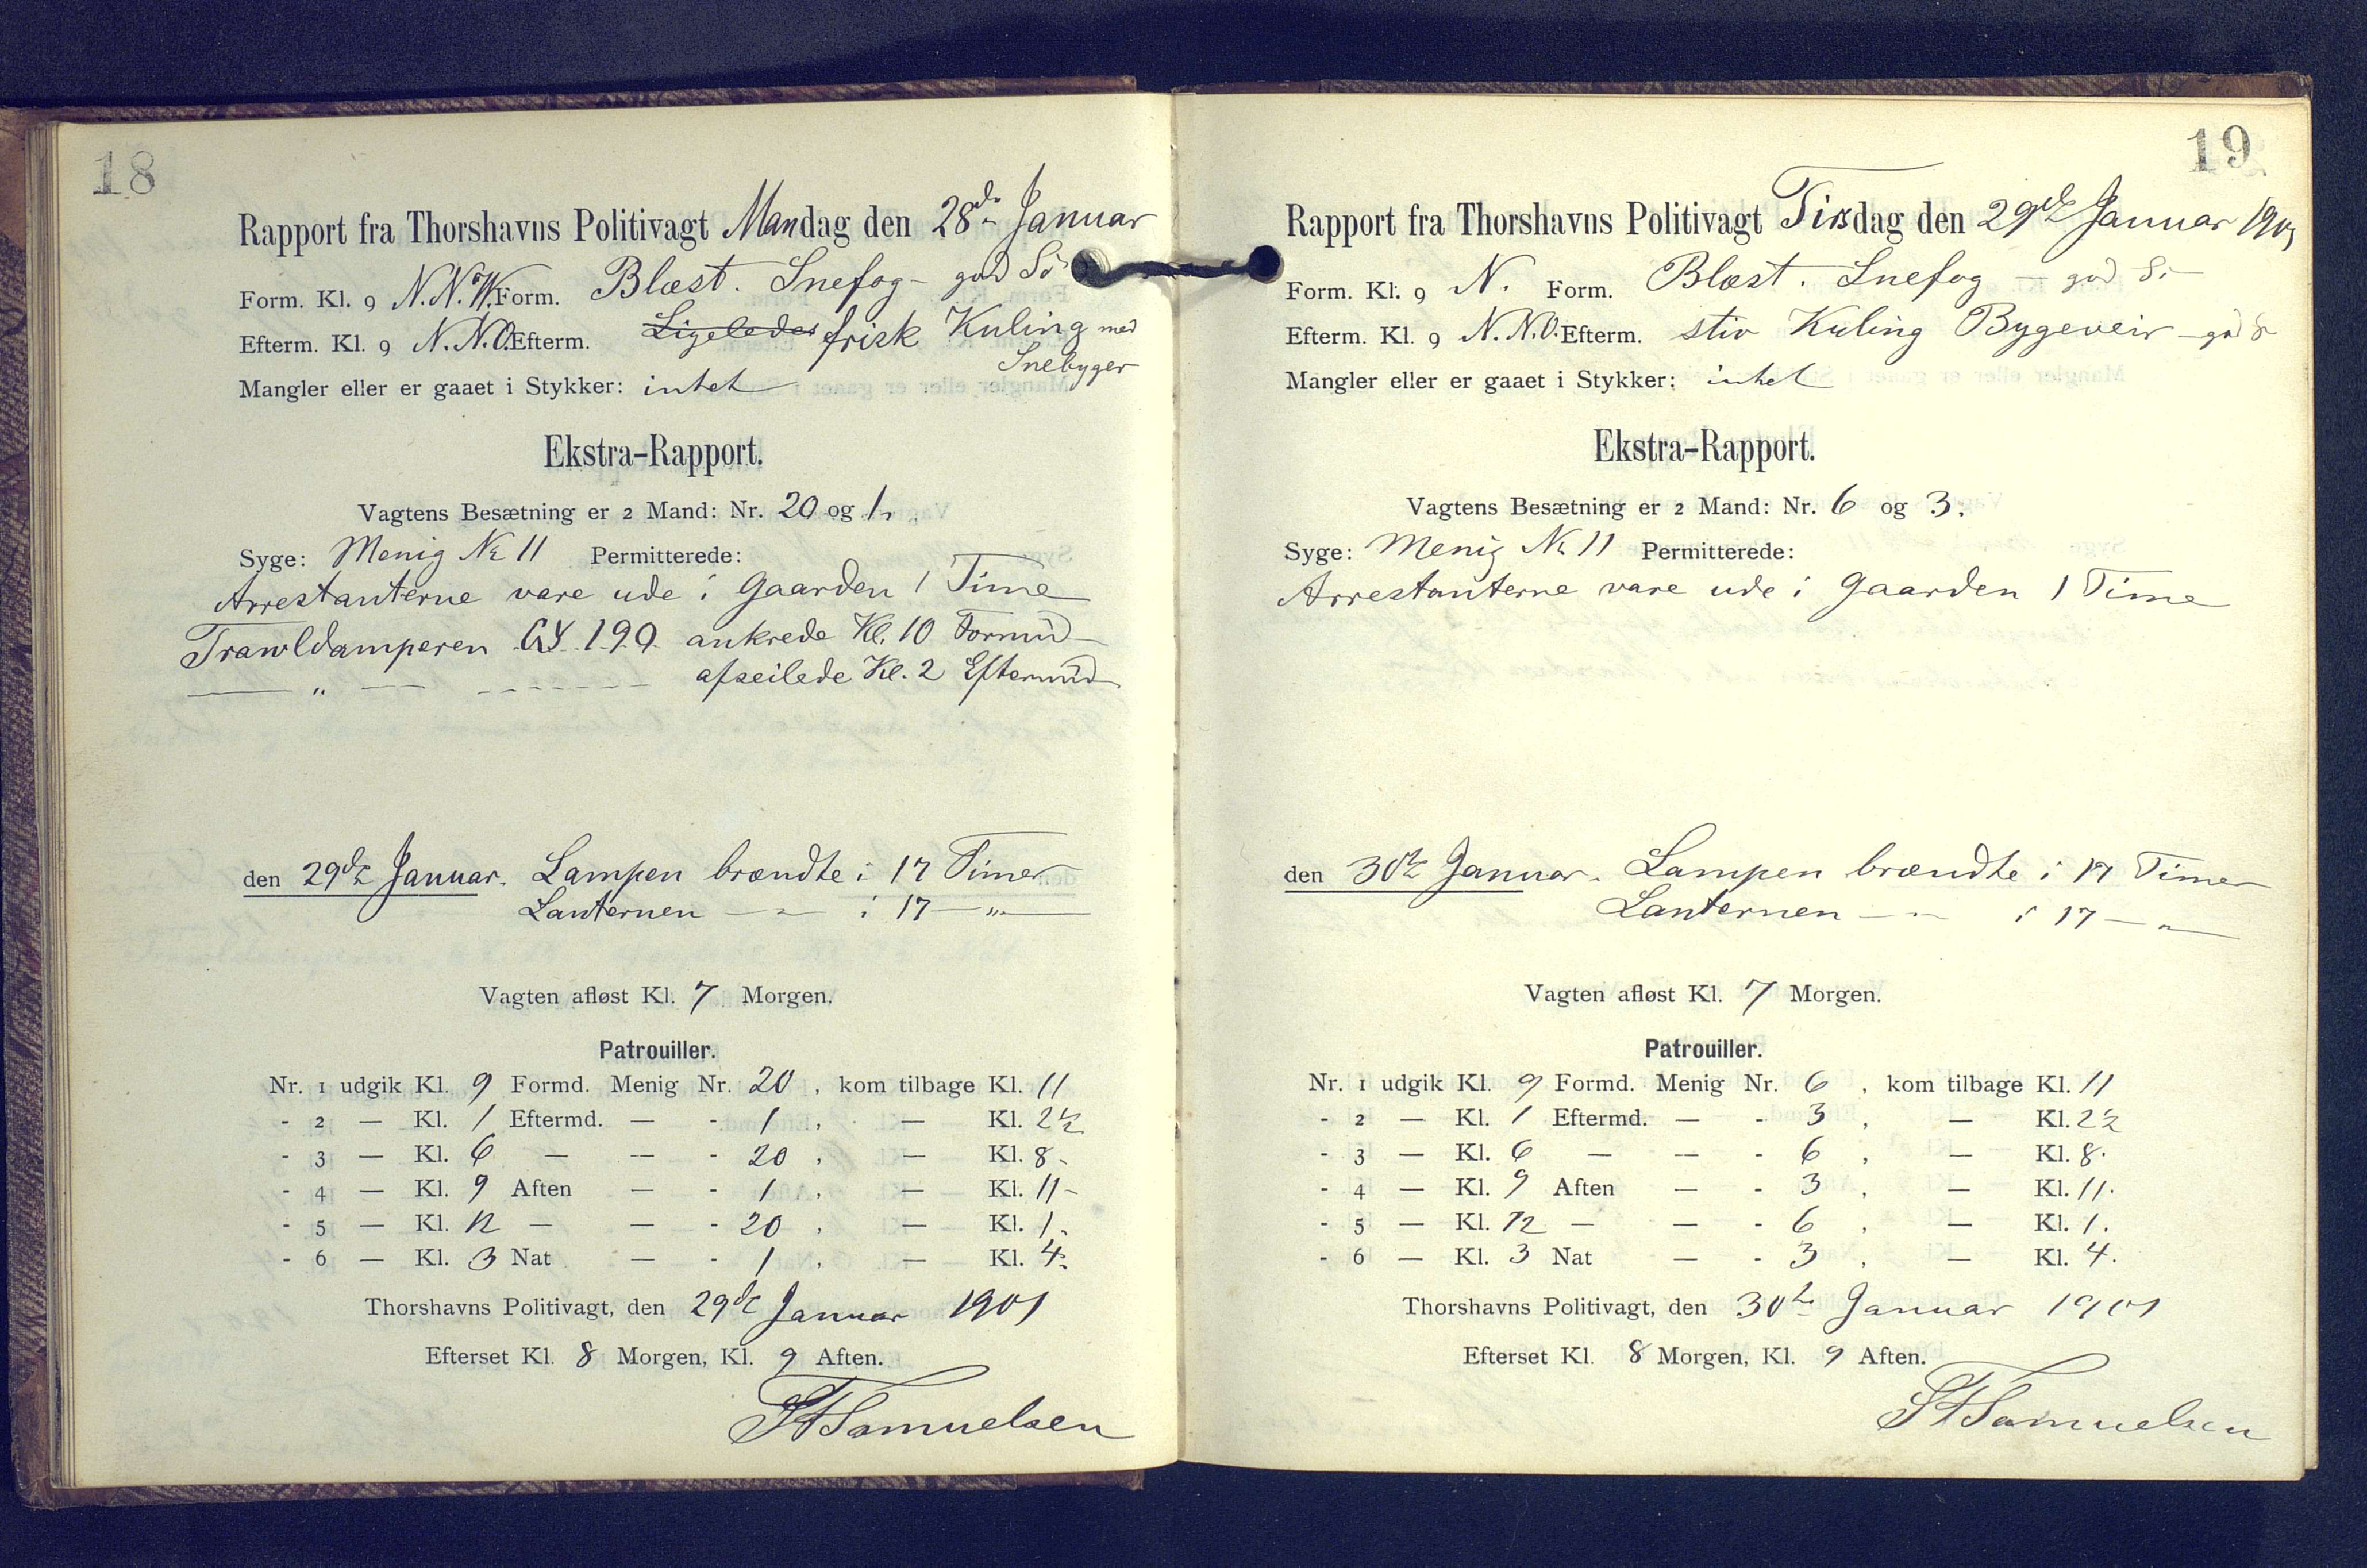 18
Rapport fra Thorshavns Politivagt Mandag den 28de Januar
Form. Kl. 9 N.N.W. Form. Blæst. Snefog - god Sø
Efterm. Kl. 9 N.N.O. Efterm. Ligeledes frisk Kuling med
Snebyger
Mangler eller er gaaet i Stykker: intet
Ekstra-Rapport.
Vagtens Besætning er 2 Mand: Nr. 20 og 1.
Syge: Menig Nr 11 Permitterede:
Arrestanterne vare ude i Gaarden 1 Time
Trawldamperen GY. 190 ankrede Kl. 10 Formd
— " — - - - - - - afseilede Kl. 2 Eftermd
den 29de Januar. Lampen brændte i 17 Timer
Lanternen — " — i 17 — " —
Vagten afløst Kl. 7 Morgen.
Patrouiller.
Nr. 1 udgik Kl. 9 Formd. Menig Nr. 20 , kom tilbage Kl. 11
- 2 — Kl. 1 Eftermd. — - 1 , — Kl. 2½
- 3 — Kl. 6 — — - 20 , — Kl. 8-
- 4 — Kl. 9 Aften — - 1 , — Kl. 11-
- 5 — Kl. 12 — — - 20 , — Kl. 1.
- 6 — Kl. 3 Nat — - 1 , — Kl. 4.
Thorshavns Politivagt, den 29de Januar 1901
Efterset Kl. 8 Morgen, Kl. 9 Aften.
Samuelsen
19
Rapport fra Thorshavns Politivagt Tirsdag den 29de Januar 1901
Form. Kl. 9 N. Form. Blæst. Snefog — god Sø
Efterm. Kl. 9 N.N.O. Efterm. stiv Kuling Bygeveir - god S
Mangler eller er gaaet i Stykker: intet
Ekstra-Rapport.
Vagtens Besætning er 2 Mand: Nr. 6 og 3.
Syge: Menig Nr 11 Permitterede:
Arrestanterne vare ude i Gaarden 1 Time
den 30te Januar. Lampen brændte i 17 Timer
Lanternen — " — i 17 — "
Vagten afløst Kl. 7 Morgen.
Patrouiller.
Nr. 1 udgik Kl. 9 Formd. Menig Nr. 6 , kom tilbage Kl. 11
- 2 — Kl. 1 Eftermd. — - 3 , — Kl. 2½
- 3 — Kl. 6 — — - 6 , — Kl. 8.
- 4 — Kl. 9 Aften — - 3 , — Kl. 11.
- 5 — Kl. 12 — — - 6 , — Kl. 1.
- 6 — Kl. 3 Nat — - 3 , — Kl. 4.
Thorshavns Politivagt, den 30te Januar 1901
Efterset Kl. 8 Morgen, Kl. 9 Aften.
Samuelsen